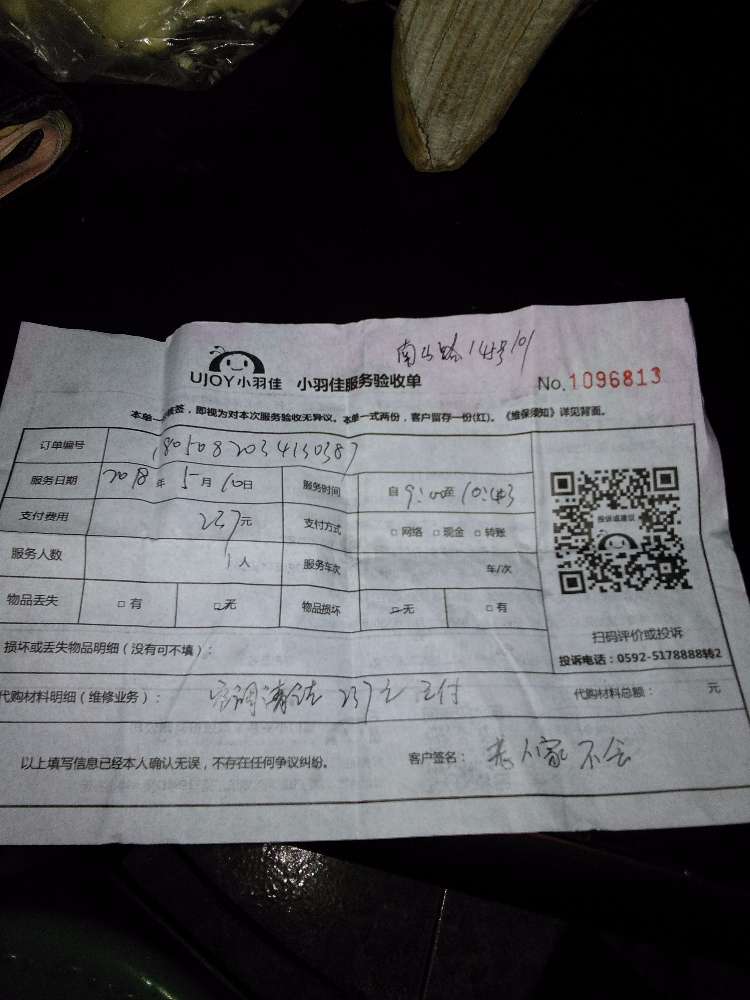 南山路145号101
UJOY小羽佳 小羽佳服务验收单
No.1096813
本单一 签,即视为对本次服务验收无异议。本单一式两份,客户留存一份(红)。《维保须知》详见背面。
订单编号 1805082034130387
服务日期 2018年5月10日 服务时间 自9:00至10:43
支付费用 237元 支付方式 □网络 □现金 □转账
服务人数 1人 服务车次 车/次
物品丢失 □有 □无 物品损坏 □无 □有
投诉或建议
扫码评价或投诉
投诉电话:0592-5178888转2
损坏或丢失物品明细(没有可不填):
代购材料明细(维修业务): 空调清洗 237元 已付 代购材料总额: 元
以上填写信息已经本人确认无误,不存在任何争议纠纷。 客户签名: 老人家不会